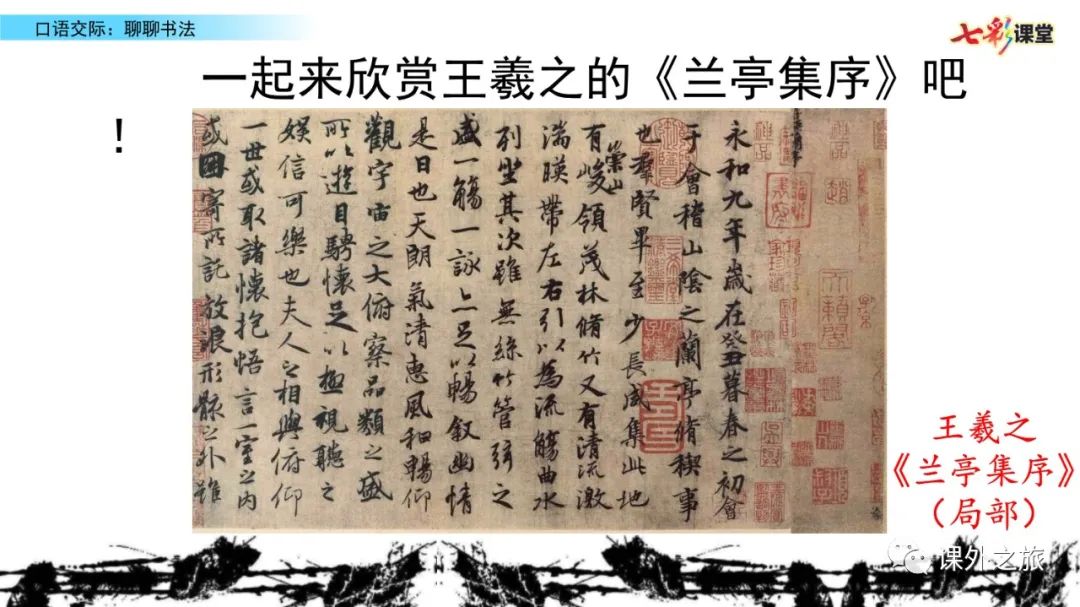 口语交际：聊聊书法
七彩课堂
一起来欣赏王羲之的《兰亭集序》吧
！
永和九年歲在癸丑暮春之初會
于會稽山陰之蘭亭脩稧事
也羣賢畢至少長咸集此地
有崇山峻領茂林脩竹又有清流激
湍暎帶左右引以為流觴曲水
列坐其次雖無絲竹管弦之
盛一觴一詠亦足以暢叙幽情
是日也天朗氣清惠風和暢仰
觀宇宙之大俯察品類之盛
所以遊目騁懷足以極視聽之
娛信可樂也夫人之相與俯仰
一世或取諸懷抱悟言一室之內
或因寄所託放浪形骸之外雖
王羲之
《兰亭集序》
（局部）
课外之旅